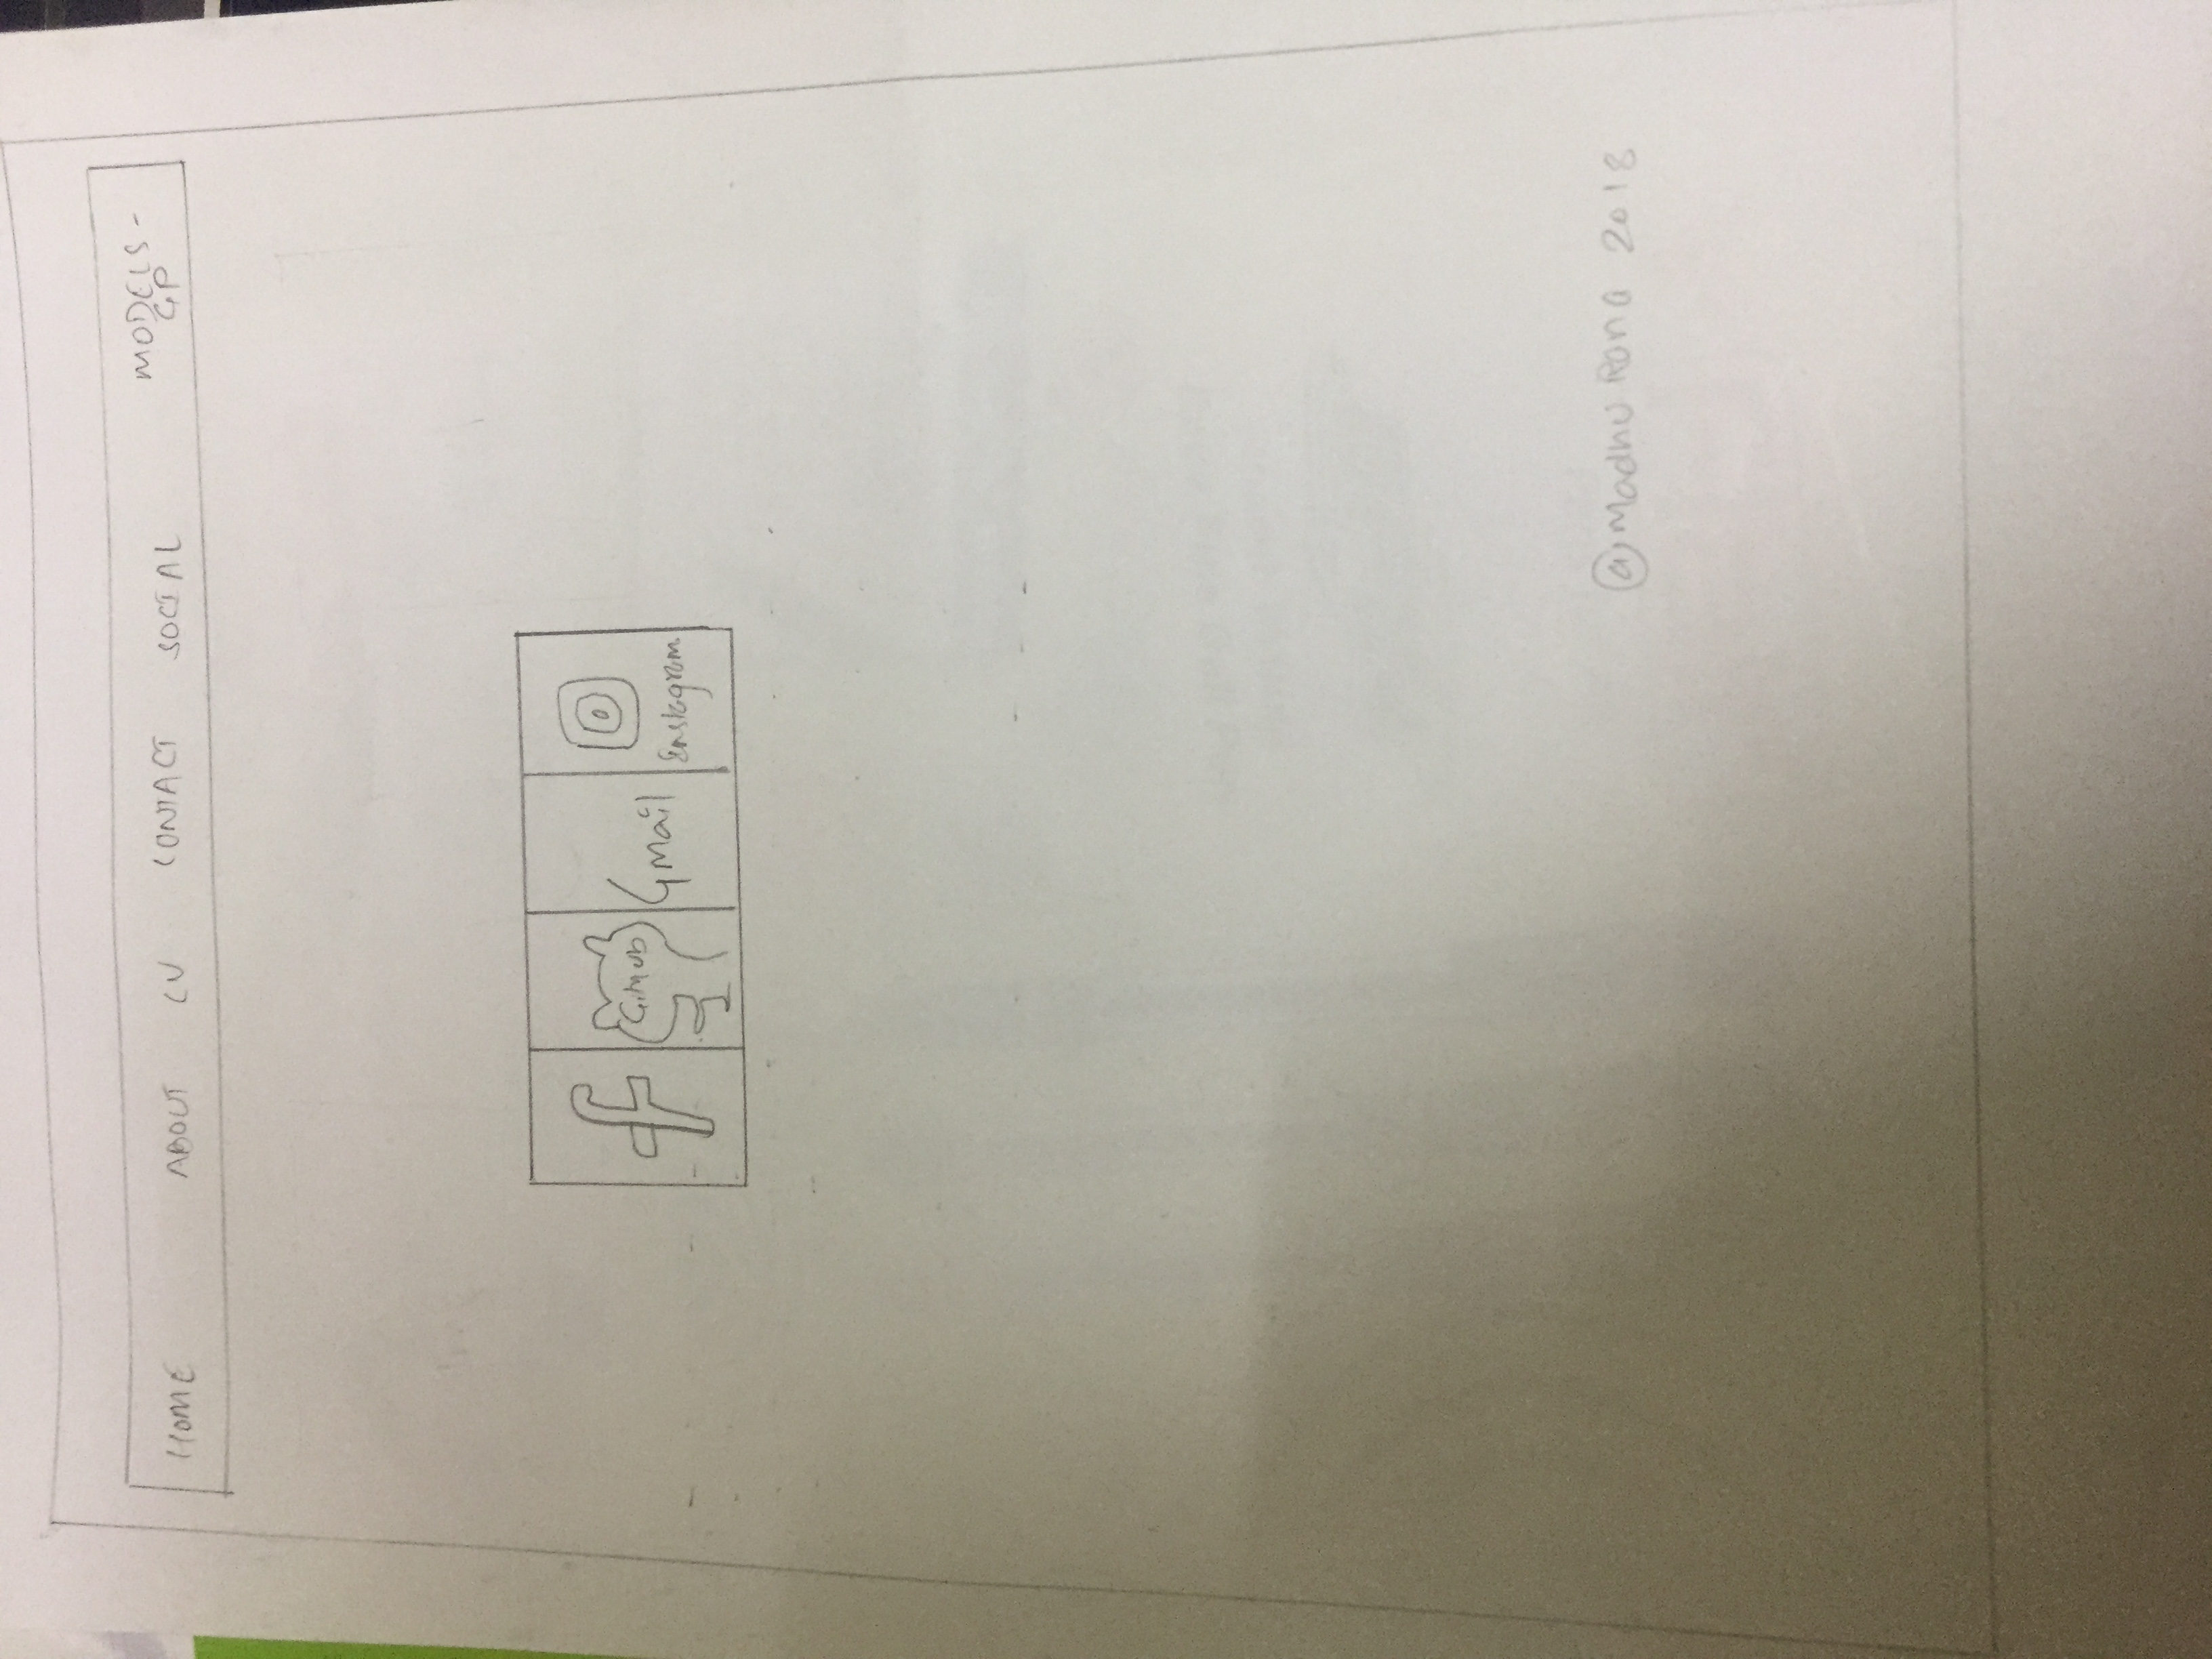 HOME ABOUT CV CONTACT SOCIAL MODELS-
GP
f GitHub Gmail Instagram
@Madhu Rana 2018